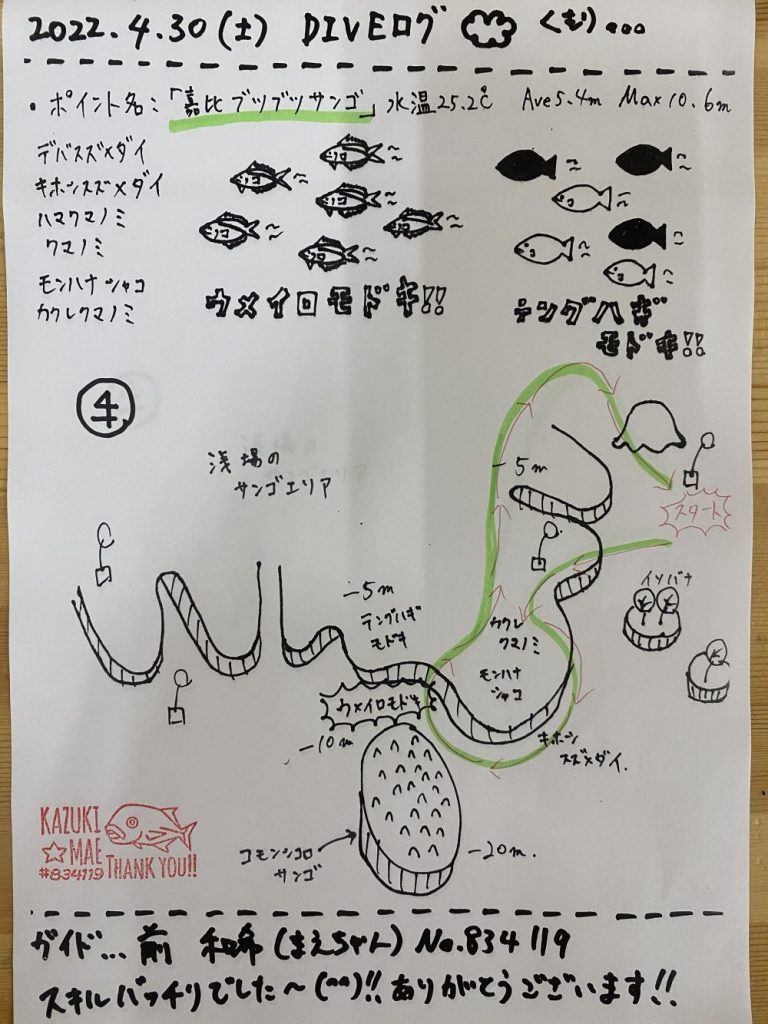 2022.4.30(土) DIVEログ くもり...
・ポイント名:「嘉比ブツブツサンゴ」水温25.2℃ Ave5.4m Max10.6m
デバスズメダイ
キホシスズメダイ
ハマクマノミ
クマノミ
モンハナシャコ
カクレクマノミ
ウメイロモドキ!!
テングハギ
モドキ!!
4
浅場の
サンゴエリア
-5m
スタート
イソバナ
-5m
テングハギ
モドキ
カクレ
クマノミ
モンハナ
シャコ
ウメイロモドキ
キホシ
スズメダイ.
-10m
コモンシコロ
サンゴ
-20m.
KAZUKI
MAE
#834119
THANK YOU!!
ガイド...前 和希(まえちゃん)No.834119
スキルバッチリでした～(^^)!!ありがとうございます!!